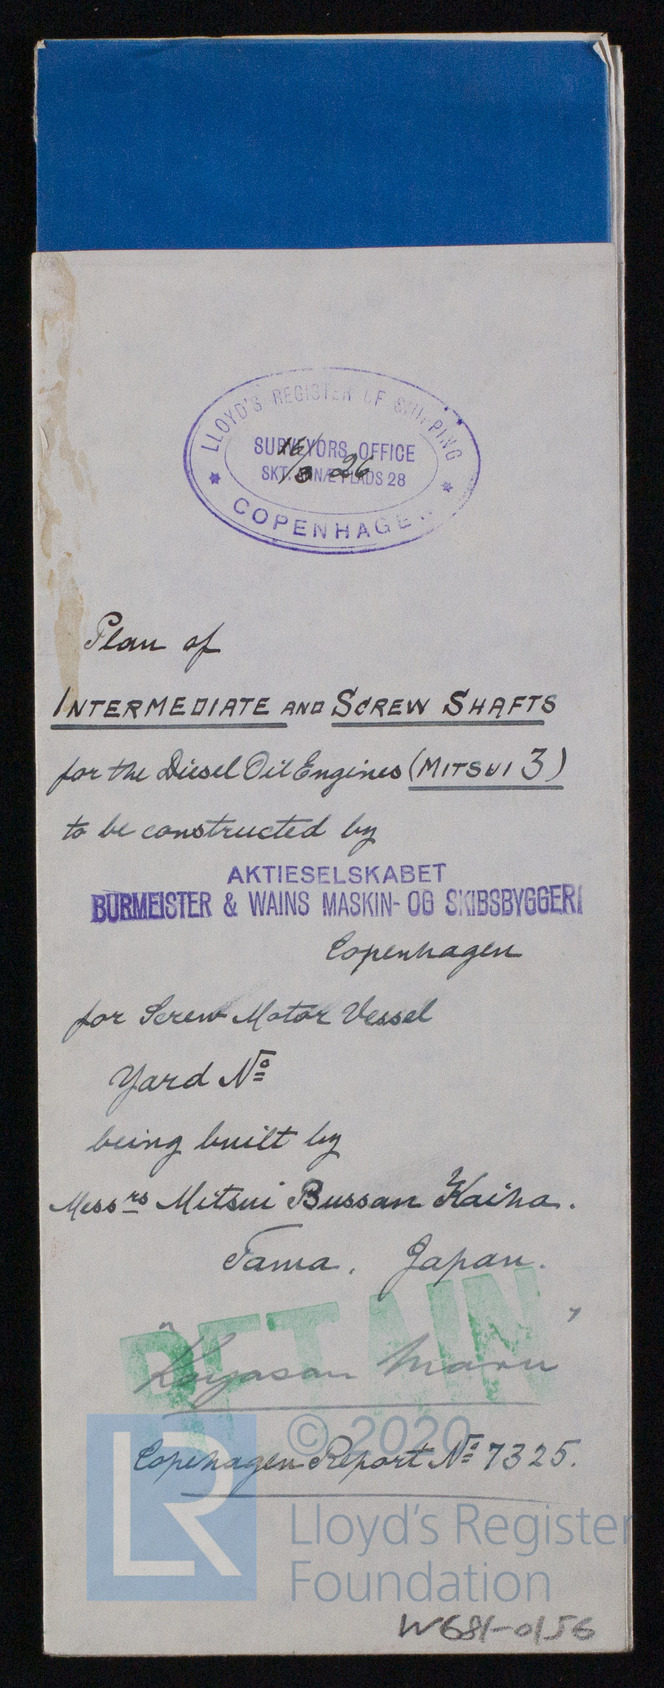 LLOYD'S REGISTER OF SHIPPING
SURVEYORS OFFICE
SKT. ANNÆ PLADS 28
COPENHAGEN
Plan of
INTERMEDIATE AND SCREW SHAFTS
for the Diesel Oil Engines (MITSUI 3)
to be constructed by
AKTIESELSKABET
BURMEISTER & WAINS MASKIN- OG SKIBSBYGGERI
Copenhagen
for Screw Motor Vessel
Yard Nº
being built by
Messrs Mitsui Bussan Kaisha.
Tama, Japan.
RETAIN
"Koyasan Maru"
© 2020
Copenhagen Report Nº 7325.
LR
Lloyd's Register
Foundation
W681-0156